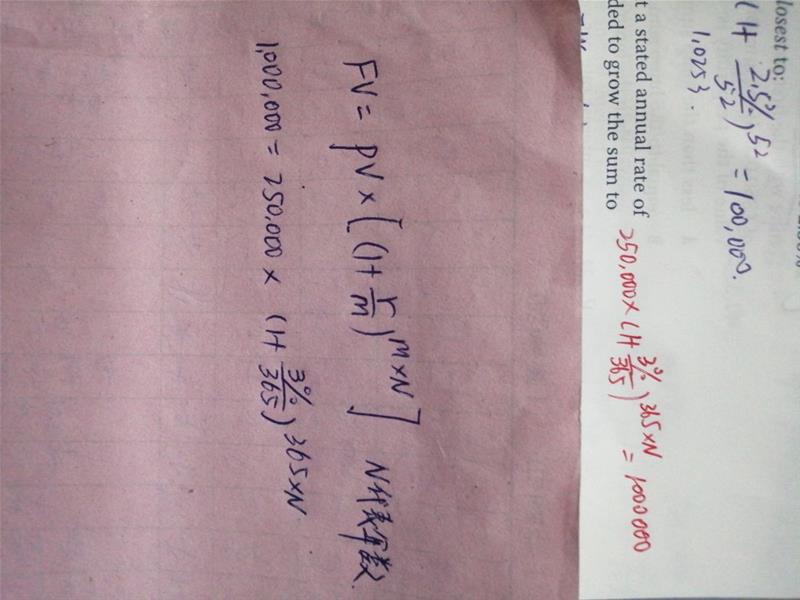 losest to:
(1+ 2.5%/52)^52 = 100,000.
1.0253.
t a stated annual rate of
ded to grow the sum to
250,000×(1+ 3%/365)^365×N = 1000000
FV = PV × [(1+ r/m)^m×N] N代表年数.
1,000,000 = 250,000 × (1+ 3%/365)^365×N